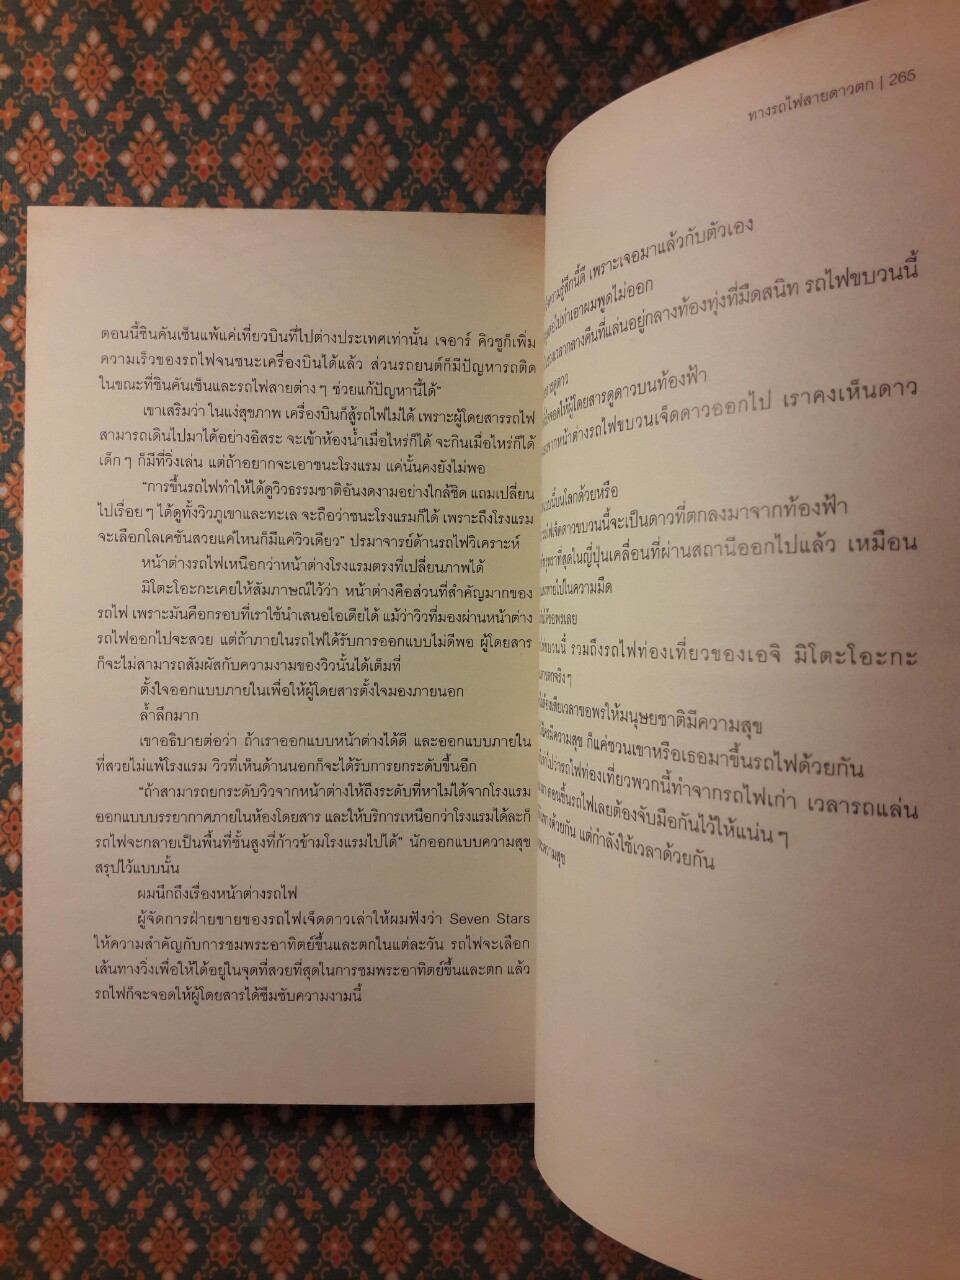 ตอนนี้ชินคันเซ็นแพ้แค่เที่ยวบินที่ไปต่างประเทศเท่านั้น เจอาร์ คิวชูก็เพิ่ม
ความเร็วของรถไฟจนชนะเครื่องบินได้แล้ว ส่วนรถยนต์ก็มีปัญหารถติด
ในขณะที่ชินคันเซ็นและรถไฟสายต่างๆ ช่วยแก้ปัญหานี้ได้”
เขาเสริมว่า ในแง่สุขภาพ เครื่องบินก็สู้รถไฟไม่ได้ เพราะผู้โดยสารรถไฟ
สามารถเดินไปมาได้อย่างอิสระ จะเข้าห้องน้ำเมื่อไหร่ก็ได้ จะกินเมื่อไหร่ก็ได้
เด็กๆ ก็มีที่วิ่งเล่น แต่ถ้าอยากจะเอาชนะโรงแรม แค่นั้นคงยังไม่พอ
“การขึ้นรถไฟทำให้ได้ดูวิวธรรมชาติอันงดงามอย่างใกล้ชิด แถมเปลี่ยน
ไปเรื่อยๆ ได้ดูทั้งวิวภูเขาและทะเล จะถือว่าชนะโรงแรมก็ได้ เพราะถึงโรงแรม
จะเลือกโลเคชันสวยแค่ไหนก็มีแค่วิวเดียว” ปรมาจารย์ด้านรถไฟวิเคราะห์
หน้าต่างรถไฟเหนือกว่าหน้าต่างโรงแรมตรงที่เปลี่ยนภาพได้
มิโตะโอะกะเคยให้สัมภาษณ์ไว้ว่า หน้าต่างคือส่วนที่สำคัญมากของ
รถไฟ เพราะมันคือกรอบที่เราใช้นำเสนอไอเดียได้ แม้ว่าวิวที่มองผ่านหน้าต่าง
รถไฟออกไปจะสวย แต่ถ้าภายในรถไฟได้รับการออกแบบไม่ดีพอ ผู้โดยสาร
ก็จะไม่สามารถสัมผัสกับความงามของวิวนั้นได้เต็มที่
ตั้งใจออกแบบภายในเพื่อให้ผู้โดยสารตั้งใจมองภายนอก
ล้ำลึกมาก
เขาอธิบายต่อว่า ถ้าเราออกแบบหน้าต่างได้ดี และออกแบบภายใน
ที่สวยไม่แพ้โรงแรม วิวที่เห็นด้านนอกก็จะได้รับการยกระดับขึ้นอีก
“ถ้าสามารถยกระดับวิวจากหน้าต่างให้ถึงระดับที่หาไม่ได้จากโรงแรม
ออกแบบบรรยากาศภายในห้องโดยสาร และให้บริการเหนือกว่าโรงแรมได้ละก็
รถไฟจะกลายเป็นพื้นที่ชั้นสูงที่ก้าวข้ามโรงแรมไปได้” นักออกแบบความสุข
สรุปไว้แบบนั้น
ผมนึกถึงเรื่องหน้าต่างรถไฟ
ผู้จัดการฝ่ายขายของรถไฟเจ็ดดาวเล่าให้ผมฟังว่า Seven Stars
ให้ความสำคัญกับการชมพระอาทิตย์ขึ้นและตกในแต่ละวัน รถไฟจะเลือก
เส้นทางวิ่งเพื่อให้ได้อยู่ในจุดที่สวยที่สุดในการชมพระอาทิตย์ขึ้นและตก แล้ว
รถไฟก็จะจอดให้ผู้โดยสารได้ซึมซับความงามนี้
ทางรถไฟสายดาวตก | 265
ความรู้สึกนี้ดี เพราะเจอมาแล้วกับตัวเอง
ทำเอาผมพูดไม่ออก
กลางคืนที่แล่นอยู่กลางท้องทุ่งที่มืดสนิท รถไฟขบวนนี้
ดูดาว
จอดให้ผู้โดยสารดูดาวบนท้องฟ้า
จากหน้าต่างรถไฟขบวนเจ็ดดาวออกไป เราคงเห็นดาว
บนโลกด้วยหรือ
เจ็ดดาวขบวนนี้จะเป็นดาวที่ตกลงมาจากท้องฟ้า
ที่สุดในญี่ปุ่นเคลื่อนที่ผ่านสถานีออกไปแล้ว เหมือน
หายไปในความมืด
ขอพรเลย
ขบวนนี้ รวมถึงรถไฟท่องเที่ยวของเอจิ มิโตะโอะกะ
ตกจริงๆ
เสียเวลาขอพรให้มนุษยชาติมีความสุข
มีความสุข ก็แค่ชวนเขาหรือเธอมาขึ้นรถไฟด้วยกัน
ไปว่ารถไฟท่องเที่ยวพวกนี้ทำจากรถไฟเก่า เวลารถแล่น
ตอนขึ้นรถไฟเลยต้องจับมือกันไว้ให้แน่นๆ
ด้วยกัน แต่กำลังใช้เวลาด้วยกัน
ความสุข